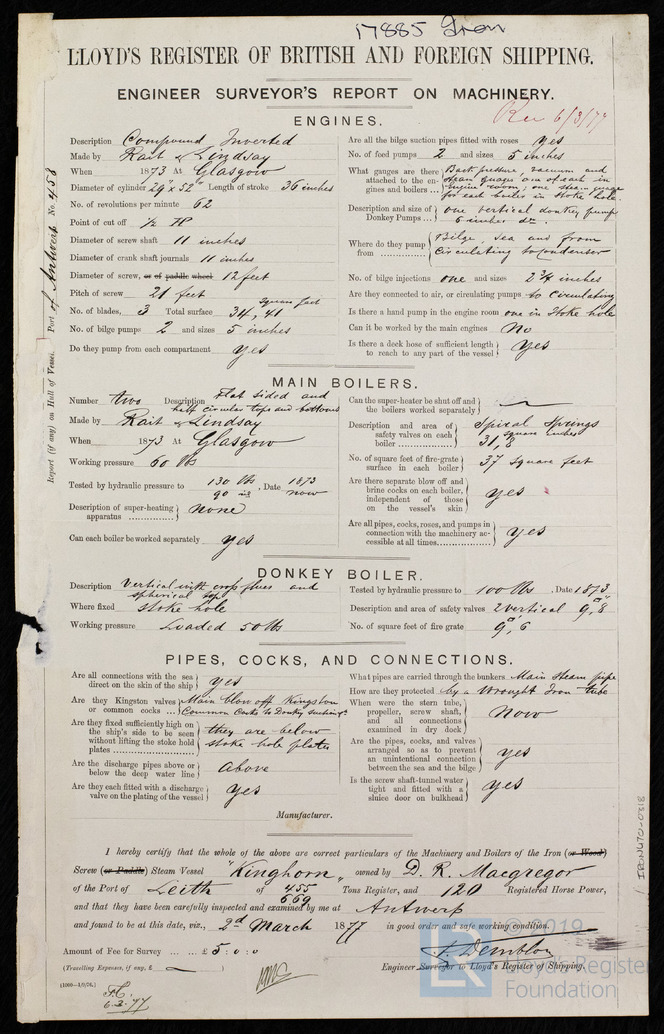 17885 Iron
LLOYD'S REGISTER OF BRITISH AND FOREIGN SHIPPING.
ENGINEER SURVEYOR'S REPORT ON MACHINERY.
Rec 6/3/77
Report (if any) on Hull of Vessel. Port of Antwerp No. 458
ENGINES.
Description Compound Inverted
Made by Rait & Lindsay
When 1873 At Glasgow
Diameter of cylinder 29" x 52" Length of stroke 36 inches
No. of revolutions per minute 62
Point of cut off
Diameter of screw shaft 11 inches
Diameter of crank shaft journals 11 inches
Diameter of screw, or of paddle wheel 12 feet
Pitch of screw 21 feet
No. of blades, 3 Total surface 34,41 square feet
No. of bilge pumps 2 and sizes 5 inches
Do they pump from each compartment yes
Are all the bilge suction pipes fitted with roses yes
No. of feed pumps 2 and sizes 5 inches
What gauges are there attached to the engines and boilers ... Back pressure, vacuum and steam guages, one of each in engine room; one steam guage for each boiler in stoke hole.
Description and size of Donkey Pumps ... one vertical donkey pump 6 inches
Where do they pump from Bilge, sea and from circulating to condenser
No. of bilge injections one and sizes 2 3/4 inches
Are they connected to air, or circulating pumps to circulating
Is there a hand pump in the engine room one in stoke hole
Can it be worked by the main engines No
Is there a deck hose of sufficient length to reach to any part of the vessel yes
MAIN BOILERS.
Number two Description flat sided and half circular tops and bottoms
Made by Rait & Lindsay
When 1873 At Glasgow
Working pressure 60 lbs
Tested by hydraulic pressure to 130 lbs . Date 1873
90 now
Description of super-heating apparatus none
Can each boiler be worked separately yes
Can the super-heater be shut off and the boilers worked separately
Description and area of safety valves on each boiler Spiral Springs 31,8 square inches
No. of square feet of fire-grate surface in each boiler 37 square feet
Are there separate blow off and brine cocks on each boiler, independent of those on the vessel's skin yes
Are all pipes, cocks, roses, and pumps in connection with the machinery accessible at all times yes
DONKEY BOILER.
Description Vertical with cross flues and spherical top
Where fixed stoke hole
Working pressure Loaded 50 lbs
Tested by hydraulic pressure to 100 lbs . Date 1873
Description and area of safety valves 2 vertical 9,8
No. of square feet of fire grate 9,6
PIPES, COCKS, AND CONNECTIONS.
Are all connections with the sea direct on the skin of the ship yes
Are they Kingston valves or common cocks ... Main blow off Kingston Common Cocks to Donkey
Are they fixed sufficiently high on the ship's side to be seen without lifting the stoke hold plates they are below stoke hole plates
Are the discharge pipes above or below the deep water line above
Are they each fitted with a discharge valve on the plating of the vessel yes
What pipes are carried through the bunkers Main steam pipe
How are they protected by a Wrought Iron tube
When were the stern tube, propeller, screw shaft, and all connections examined in dry dock Now
Are the pipes, cocks, and valves arranged so as to prevent an unintentional connection between the sea and the bilge yes
Is the screw shaft-tunnel water tight and fitted with a sluice door on bulkhead yes
Manufacturer.
I hereby certify that the whole of the above are correct particulars of the Machinery and Boilers of the Iron (or Wood)
Screw (or Paddle) Steam Vessel "Kinghorn" owned by D. R. Macgregor
of the Port of Leith of 455 Tons Register, and 120 Registered Horse Power,
669
and that they have been carefully inspected and examined by me at Antwerp
and found to be at this date, viz., 2nd March 1877 in good order and safe working condition.
Amount of Fee for Survey ... ... £ 5 : 0 : 0
Engineer Surveyor to Lloyd's Register of Shipping.
(Travelling Expenses, if any, £ )
6.3.77
IRON476-0318
© 2019
LR
Lloyd's Register
Foundation